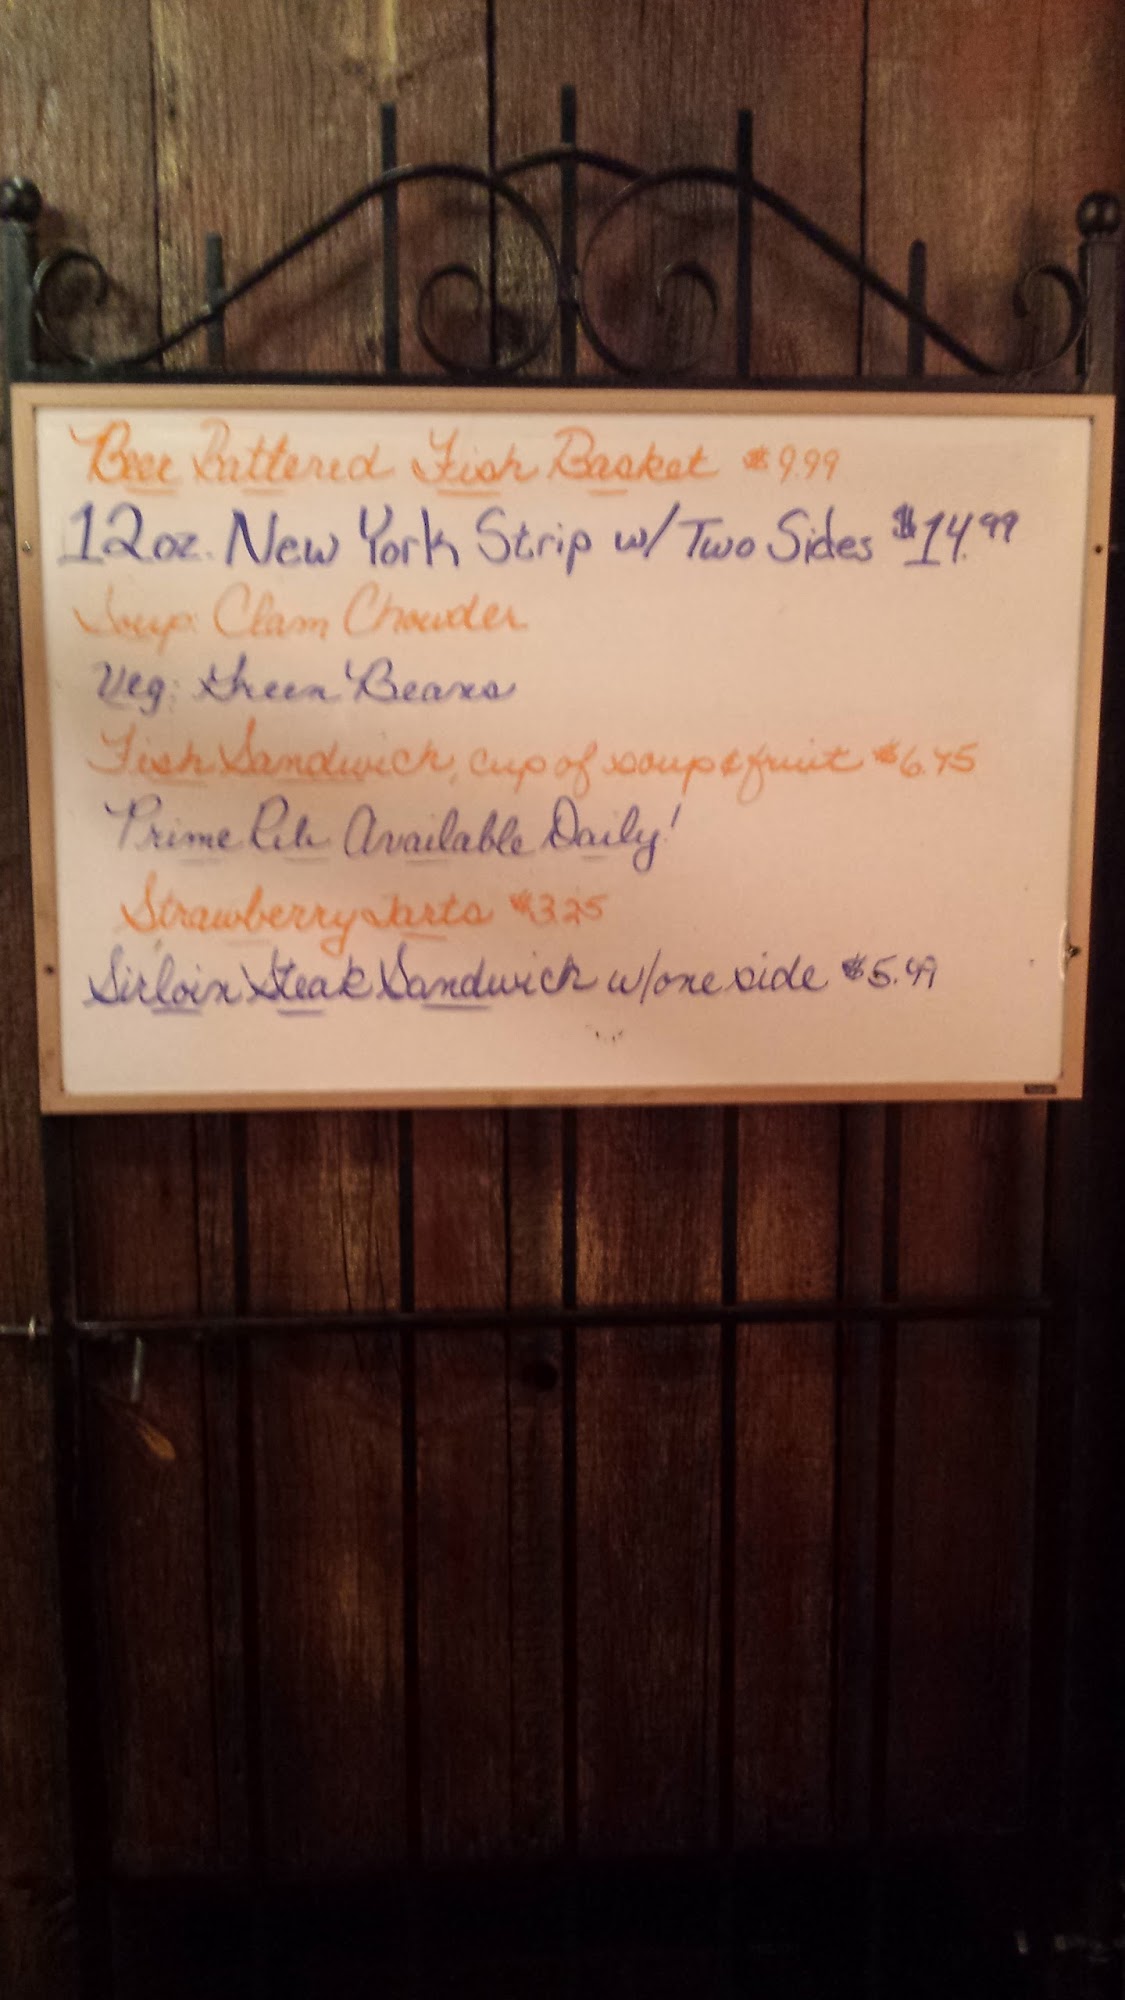 Beer Battered Fish Basket $9.99
12oz. New York Strip w/ Two Sides $14.99
Soup: Clam Chowder
Veg: Green Beans
Fish Sandwich, cup of soup & fruit $6.45
Prime Rib Available Daily!
Strawberry Tarts $3.25
Sirloin Steak Sandwich w/one side $5.49